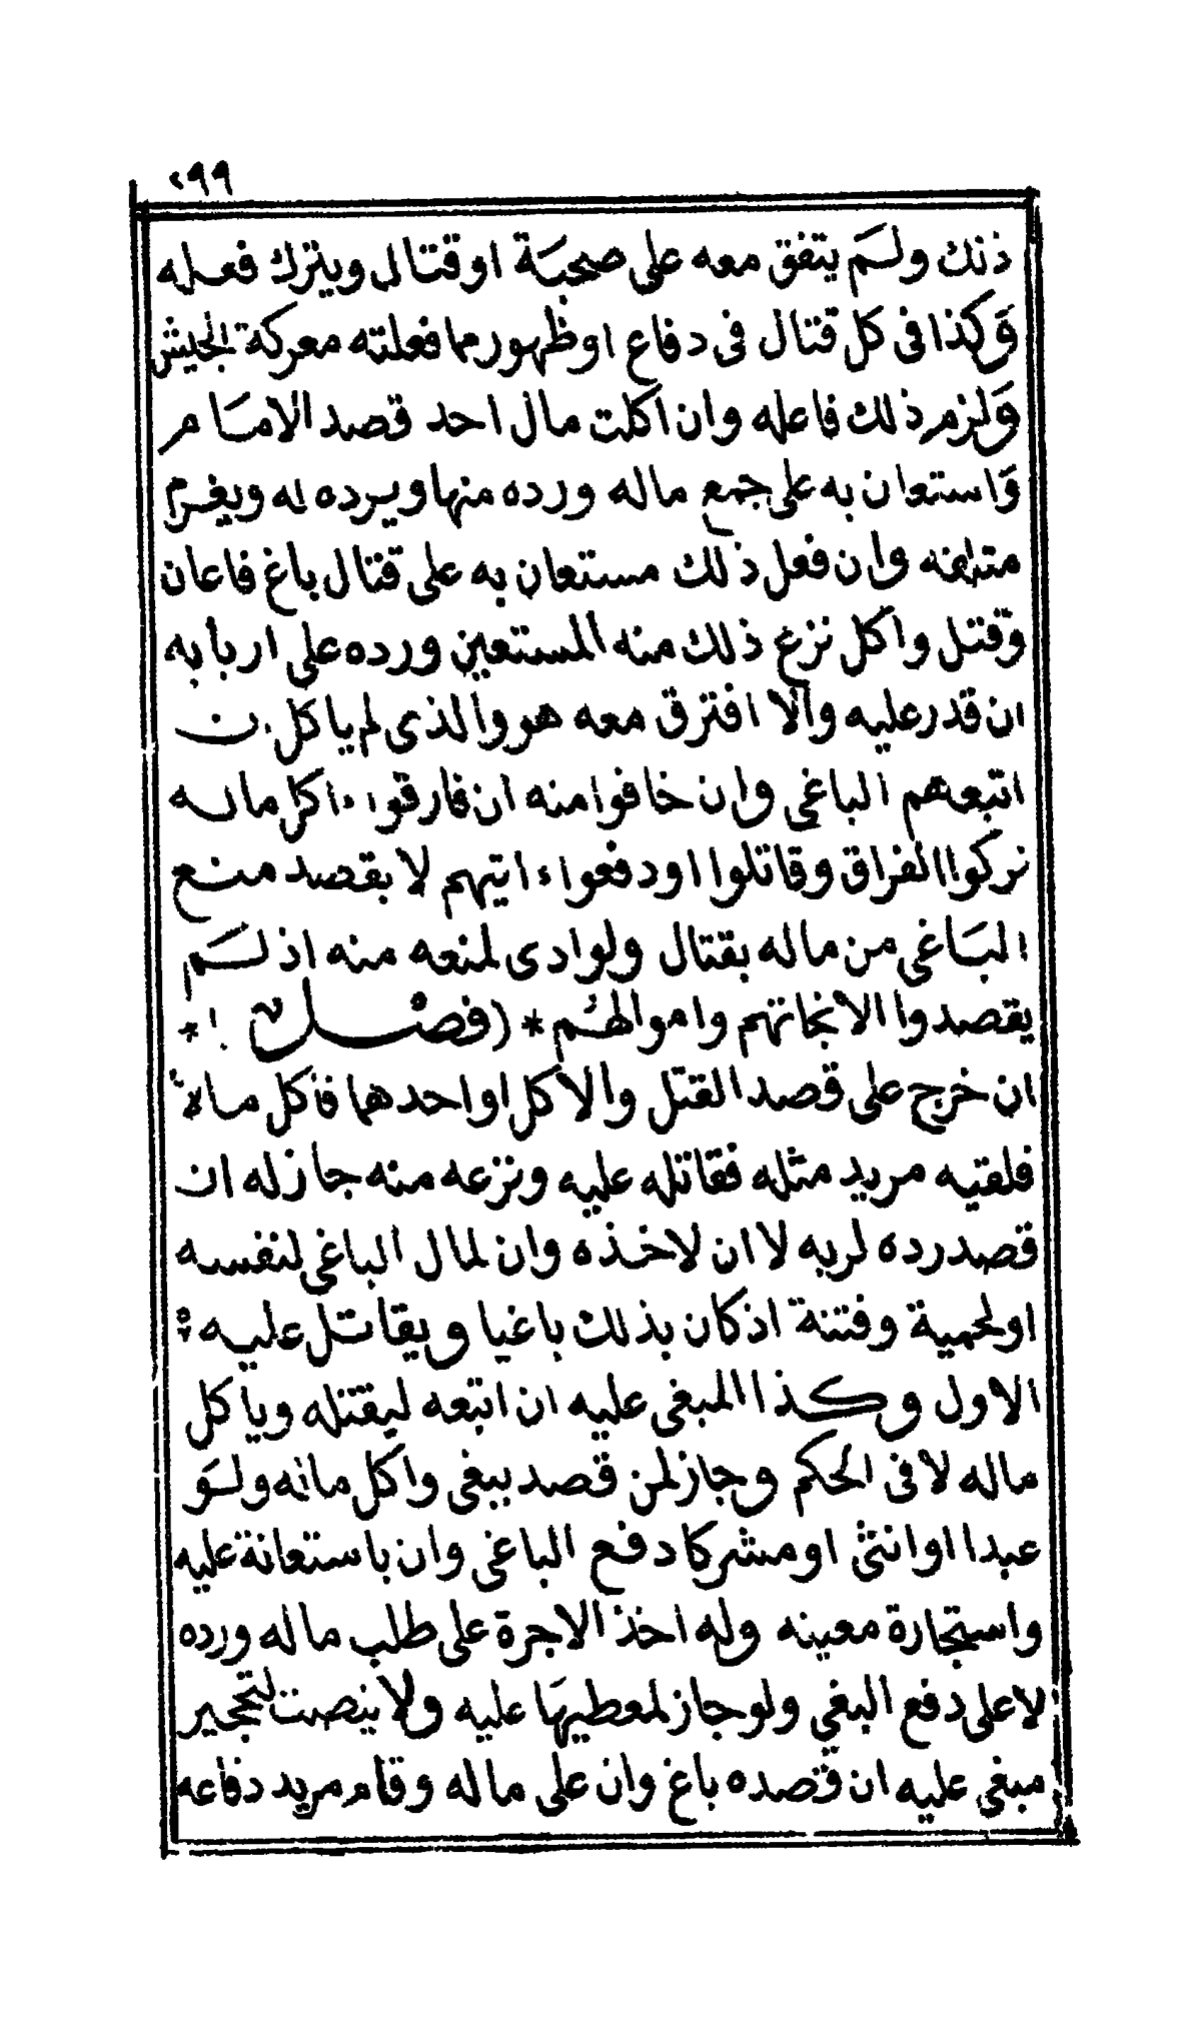 ٢٩٩
ذلك ولم يتفق معه على صحبة او قتال ويترك فعله
وكذا فى كل قتال فى دفاع او ظهور مما فعلته معركة الجيش
ولزم ذلك فاعله وان اكلت مال احد قصد الامام
واستعان به على جمع ماله ورده منها ويرده له ويغرم
متلفه وان فعل ذلك مستعان به على قتال باغ فاعان
وقتل واكل نزع ذلك منه المستعين ورده على اربابه
ان قدر عليه والا افترق معه هو والذى لم ياكل ن
اتبعهم الباغى وان خافوا منه ان فارقوا ء اكل ماله
تركوا الفراق وقاتلوا او دفعوا ء اتيهم لا بقصد منع
الباغى من ماله بقتال ولو ادى لمنعه منه اذ لم
يقصدوا الا نجاتهم واموالهم * (فصل) *
ان خرج على قصد القتل والاكل او احدهما فأكل مالا
فلقيه مريد مثله فقاتله عليه ونزعه منه جاز له ان
قصد رده لربه لا ان لاخذه وان لمال الباغى لنفسه
او لحمية وفتنة اذ كان بذلك باغيا ويقاتل عليه
الاول وكذا المبغى عليه ان اتبعه ليقتله وياكل
ماله لا فى الحكم وجاز لمن قصد ببغى واكل ماله ولو
عبدا او انثى او مشركا دفع الباغى وان باستعانة عليه
واستجارة معينه وله اخذ الاجرة على طلب ماله ورده
لا على دفع البغي ولو جاز لمعطيها عليه ولا ينصت لتجير
مبغى عليه ان قصده باغ وان على ماله وقام مريد دفاعه